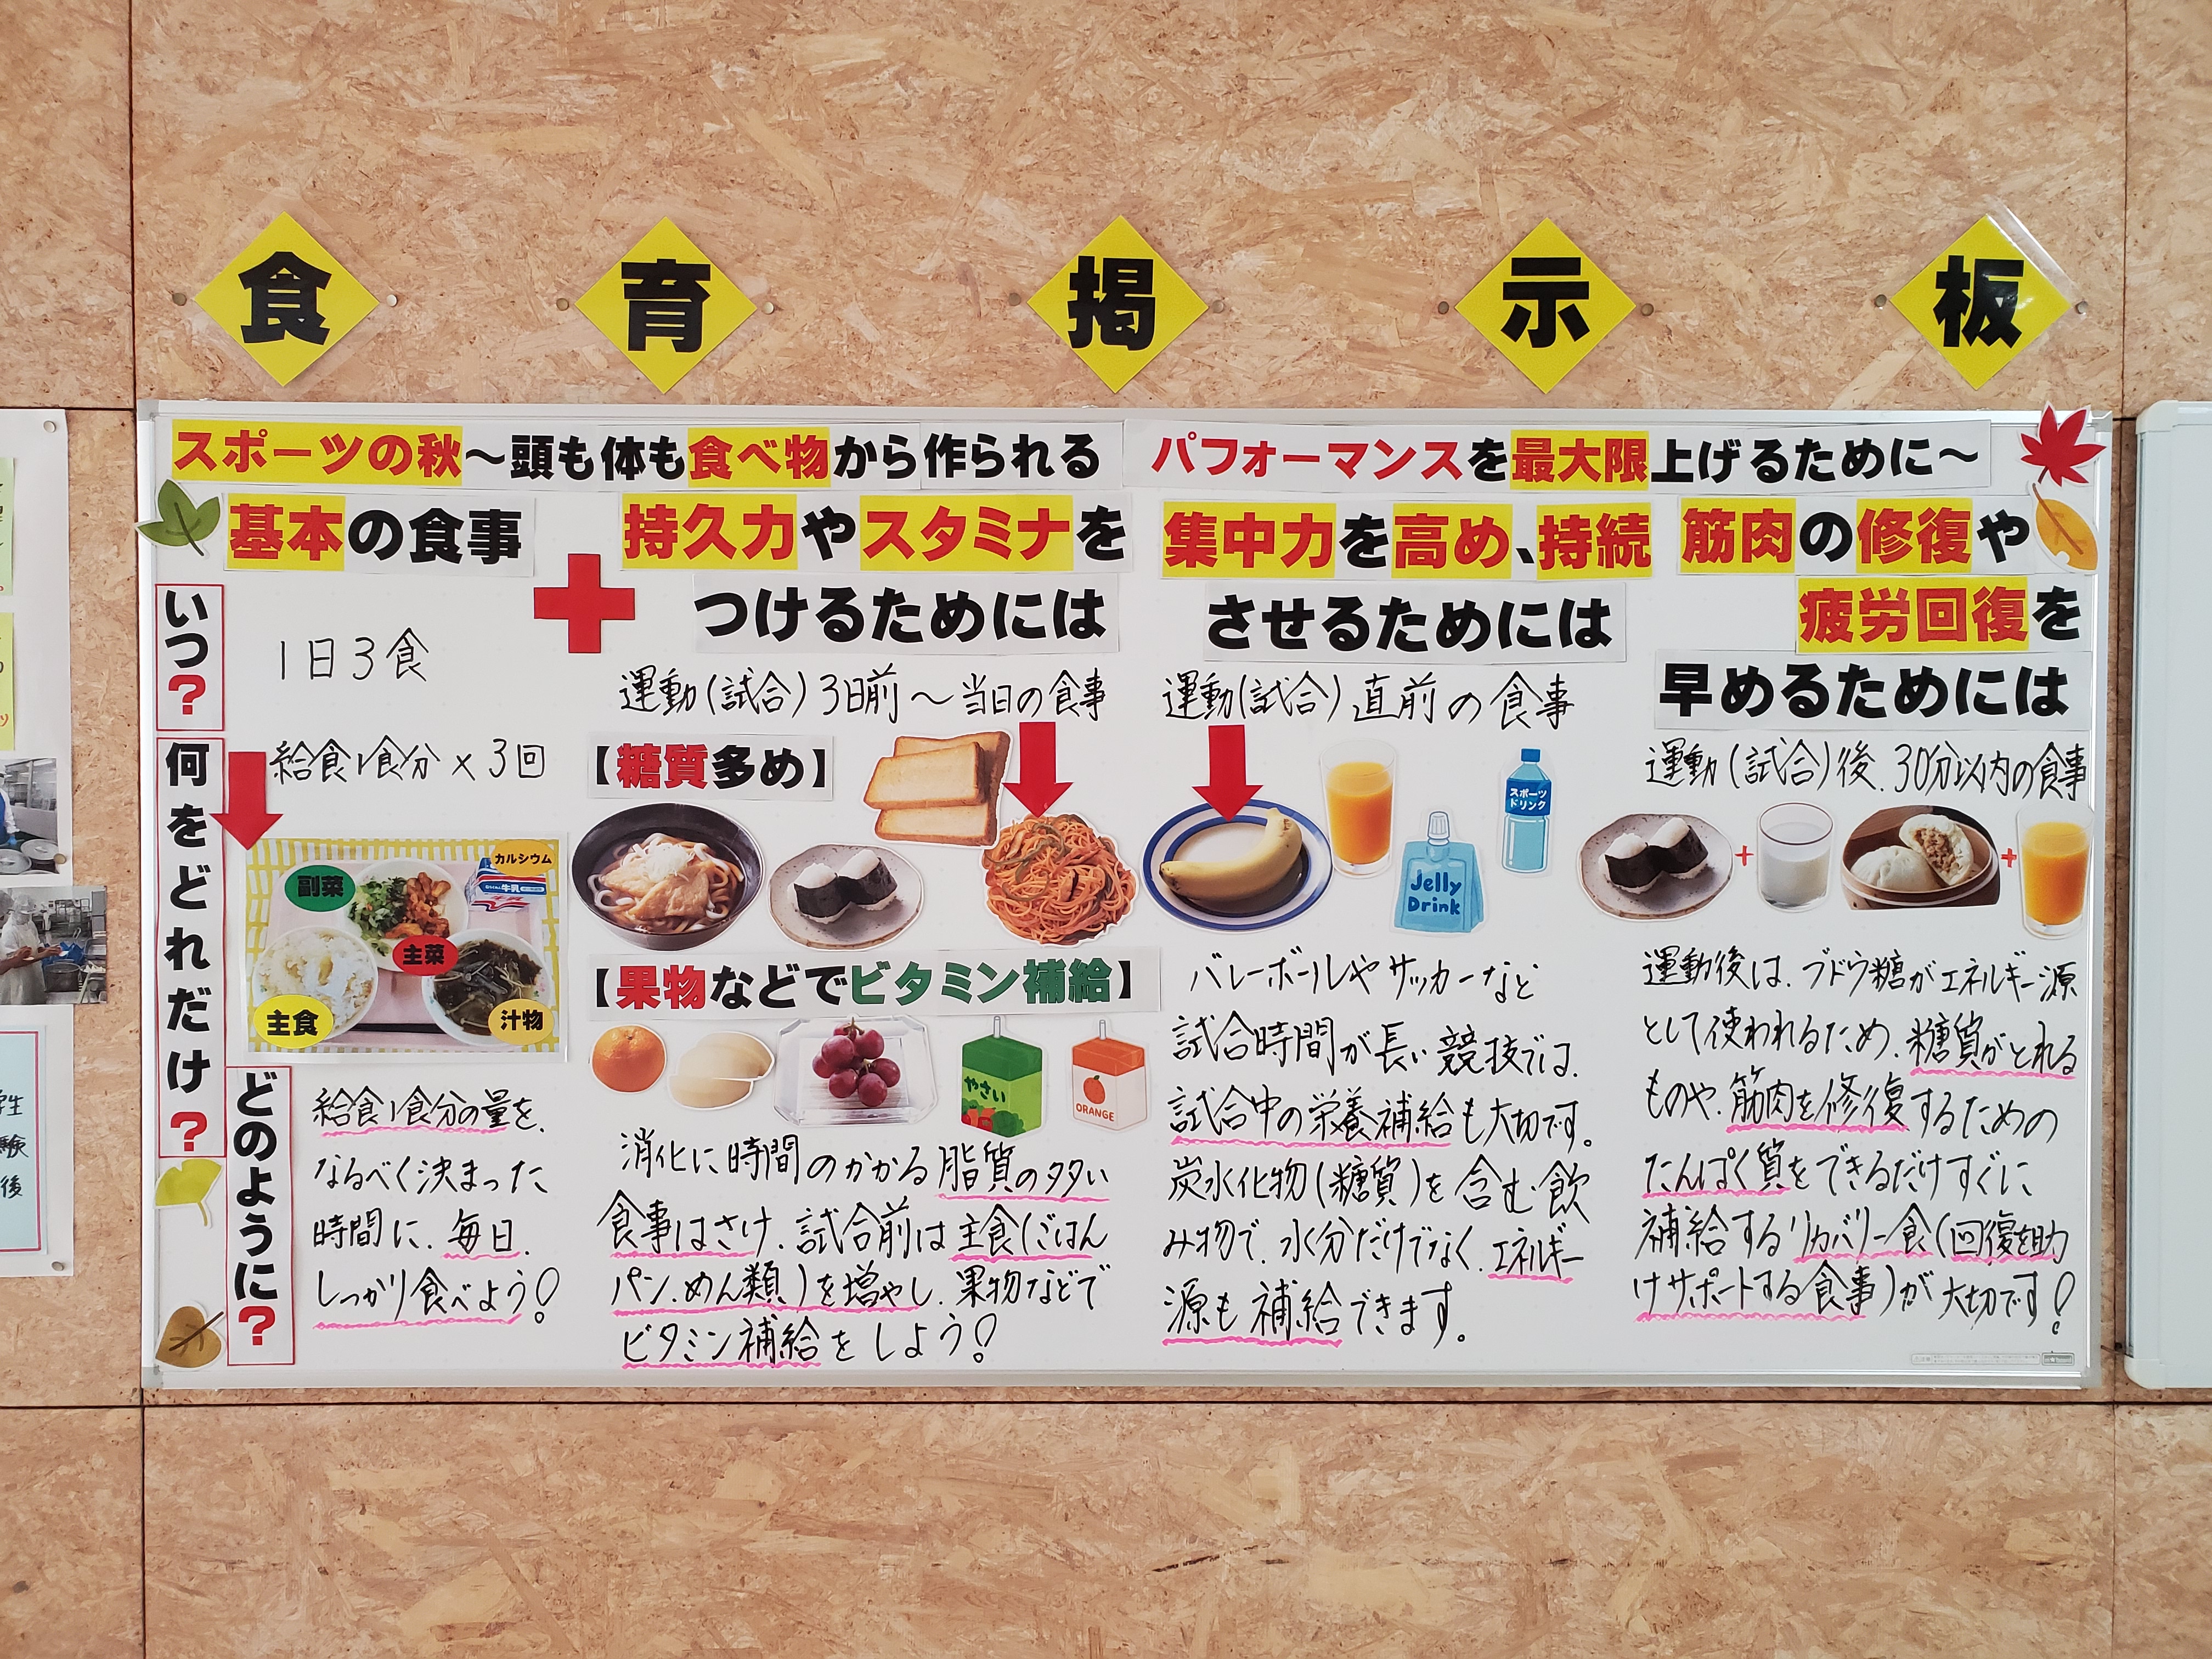 食育掲示板
スポーツの秋～頭も体も食べ物から作られる パフォーマンスを最大限上げるために～
基本の食事
いつ？
1日3食
何をどれだけ？
給食1食分×3回
副菜
カルシウム
牛乳
主菜
主食
汁物
どのように？
給食1食分の量を、
なるべく決まった
時間に、毎日、
しっかり食べよう！
持久力やスタミナを
つけるためには
運動（試合）3日前～当日の食事
【糖質多め】
【果物などでビタミン補給】
やさい
ORANGE
消化に時間のかかる脂質の多い
食事はさけ、試合前は主食（ごはん
パン、めん類）を増やし、果物などで
ビタミン補給をしよう！
集中力を高め、持続
させるためには
運動（試合）直前の食事
スポーツ
ドリンク
Jelly
Drink
バレーボールやサッカーなど
試合時間が長い競技では、
試合中の栄養補給も大切です。
炭水化物（糖質）を含む飲
み物で、水分だけでなく、エネルギー
源も補給できます。
筋肉の修復や
疲労回復を
早めるためには
運動（試合）後、30分以内の食事
運動後は、ブドウ糖がエネルギー源
として使われるため、糖質がとれる
ものや、筋肉を修復するための
たんぱく質をできるだけすぐに
補給するリカバリー食（回復を助
けサポートする食事）が大切です！